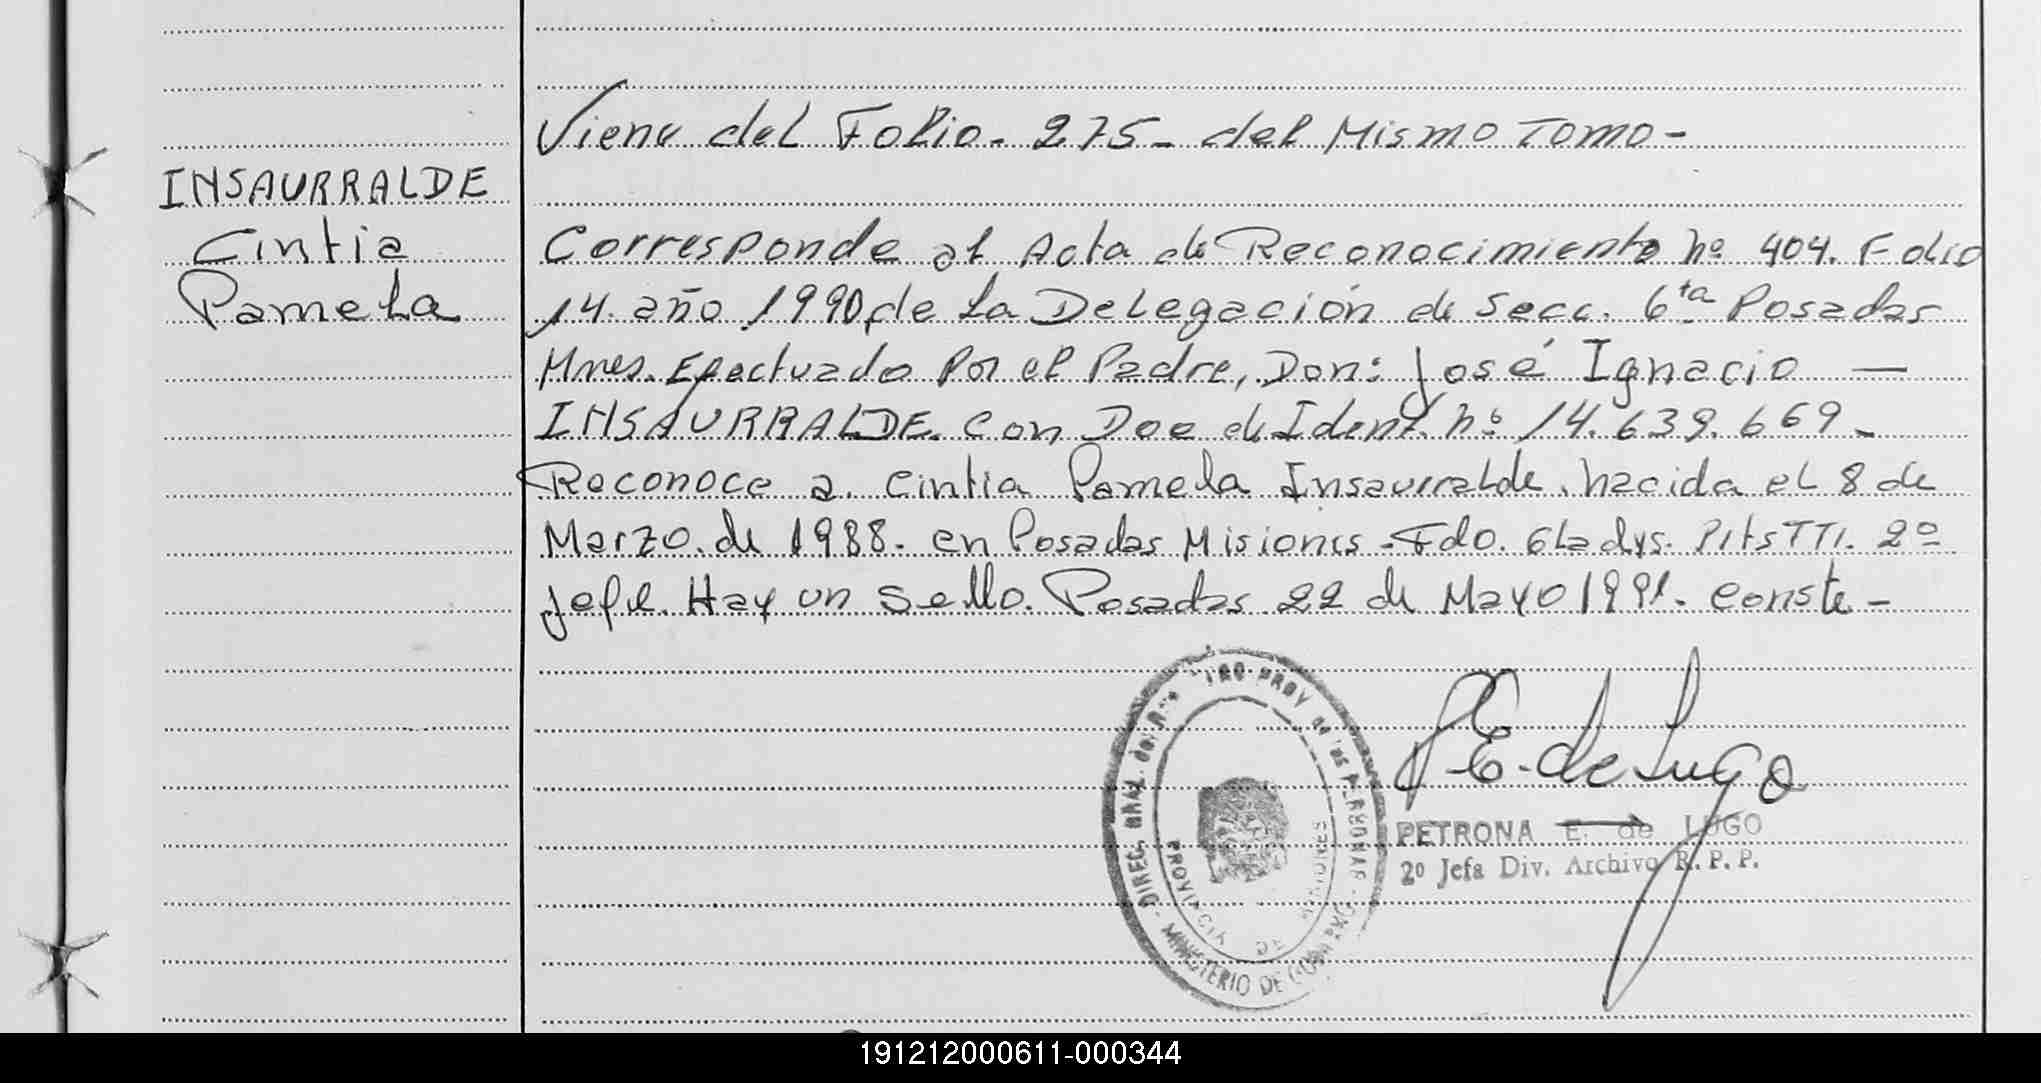 Viene del Folio - 275 - del Mismo Tomo -
INSAURRALDE
Cintia
Pamela
Corresponde al Acta de Reconocimiento nº 404. Folio
14. año 1990, de la Delegación de Secc. 6ta Posadas
Mnes. Efectuado Por el Padre, Don: José Ignacio —
INSAURRALDE. Con Doc de Ident. nº 14.639.669 -
Reconoce a. Cintia Pamela Insaurralde. nacida el 8 de
Marzo. de 1988. en Posadas Misiones. Fdo. Gladys. 2º
Jefe. Hay un Sello. Posadas 22 de Mayo 1991. Conste -
P E. de Lugo
PETRONA E. de LUGO
2º Jefa Div. Archivo R. P. P.
DIREC. GRAL. del PROV de las PERSONAS - MINISTERIO DE
PROVINCIA DE MISIONES
191212000611-000344